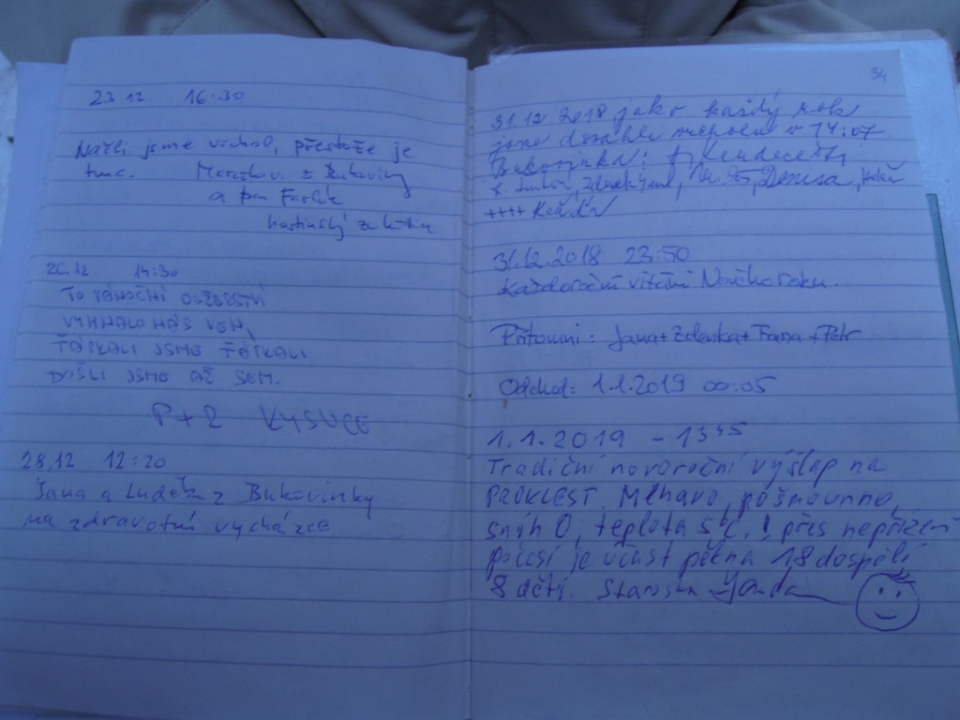 23.12 16:30
Našli jsme vrchol, přestože je
tma. z Bukoviny
a pan
26.12 14:30
TO VÁNOČNÍ OBŽERSTVÍ
VYHNALO NÁS VEN,
ŤAPKALI JSME ŤAPKALI
DOŠLI JSME AŽ SEM.
P+R
28.12 12:20
Jana a Luděk z Bukovinky
na zdravotní vycházce
34
31.12 2018 jako každý rok
jsme dosáhli v 14:07
Bukovinka:
Denisa,
++++
31.12.2018 23:50
Každoroční vítání Nového roku.
Přítomni: Jana+Zdenka+Frana+Petr
Odchod: 1.1.2019 00.05
1.1.2019 - 13 45
Tradiční novoroční výšlap na
PROKLEST. Mlhavo, pošmourno,
sníh 0, teplota 5°C. ! přes nepřízeň
počasí je účast pěkná 18 dospělí
8 dětí. Starosta